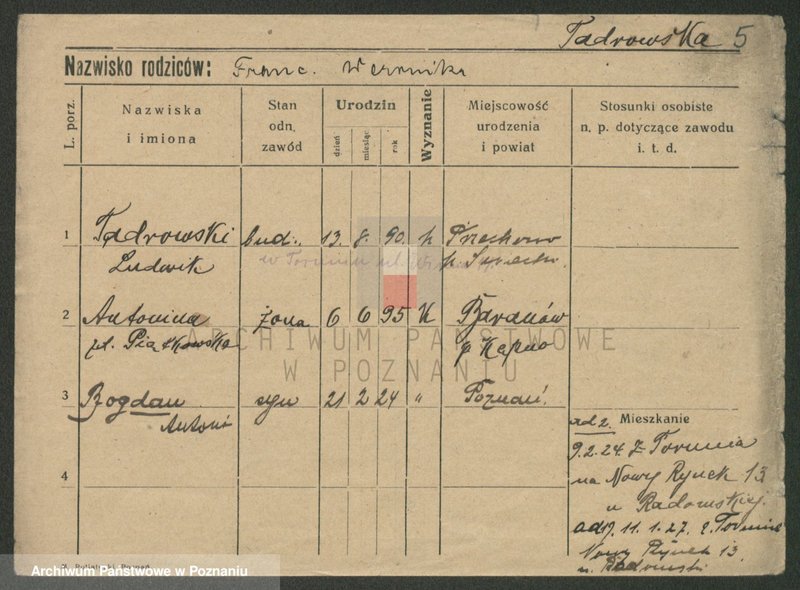 Tadrowska 5
Nazwisko rodziców: Franc. Weronika
L. porz.
Nazwiska i imiona
Stan odn. zawód
Urodzin
dzień
miesiąc
rok
Wyznanie
Miejscowość urodzenia i powiat
Stosunki osobiste n. p. dotyczące zawodu i. t. d.
1 Tadrowski bud. 13. 8. 90. k Przechowo
Ludwik p. Świecki.
w Toruniu ul.
2 Antonina żona 6 6 95 K Baranów
Piątkowska p Kępno
ARCHIWUM PAŃSTWOWE
W POZNANIU
3 Bogdan syn 21 2 24 " Poznań.
Antoni
Mieszkanie
ad 2.
9.2.24. z Torunia
na Nowy Rynek 13
u Radomskiej.
4
11. 1. 27. z Torunia
Nowy Rynek 13.
u. Radomski
Archiwum Państwowe w Poznaniu